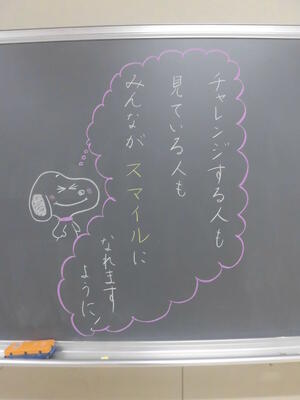 チャレンジする人も
見ている人も
みんなが スマイルに
なれます
ように!